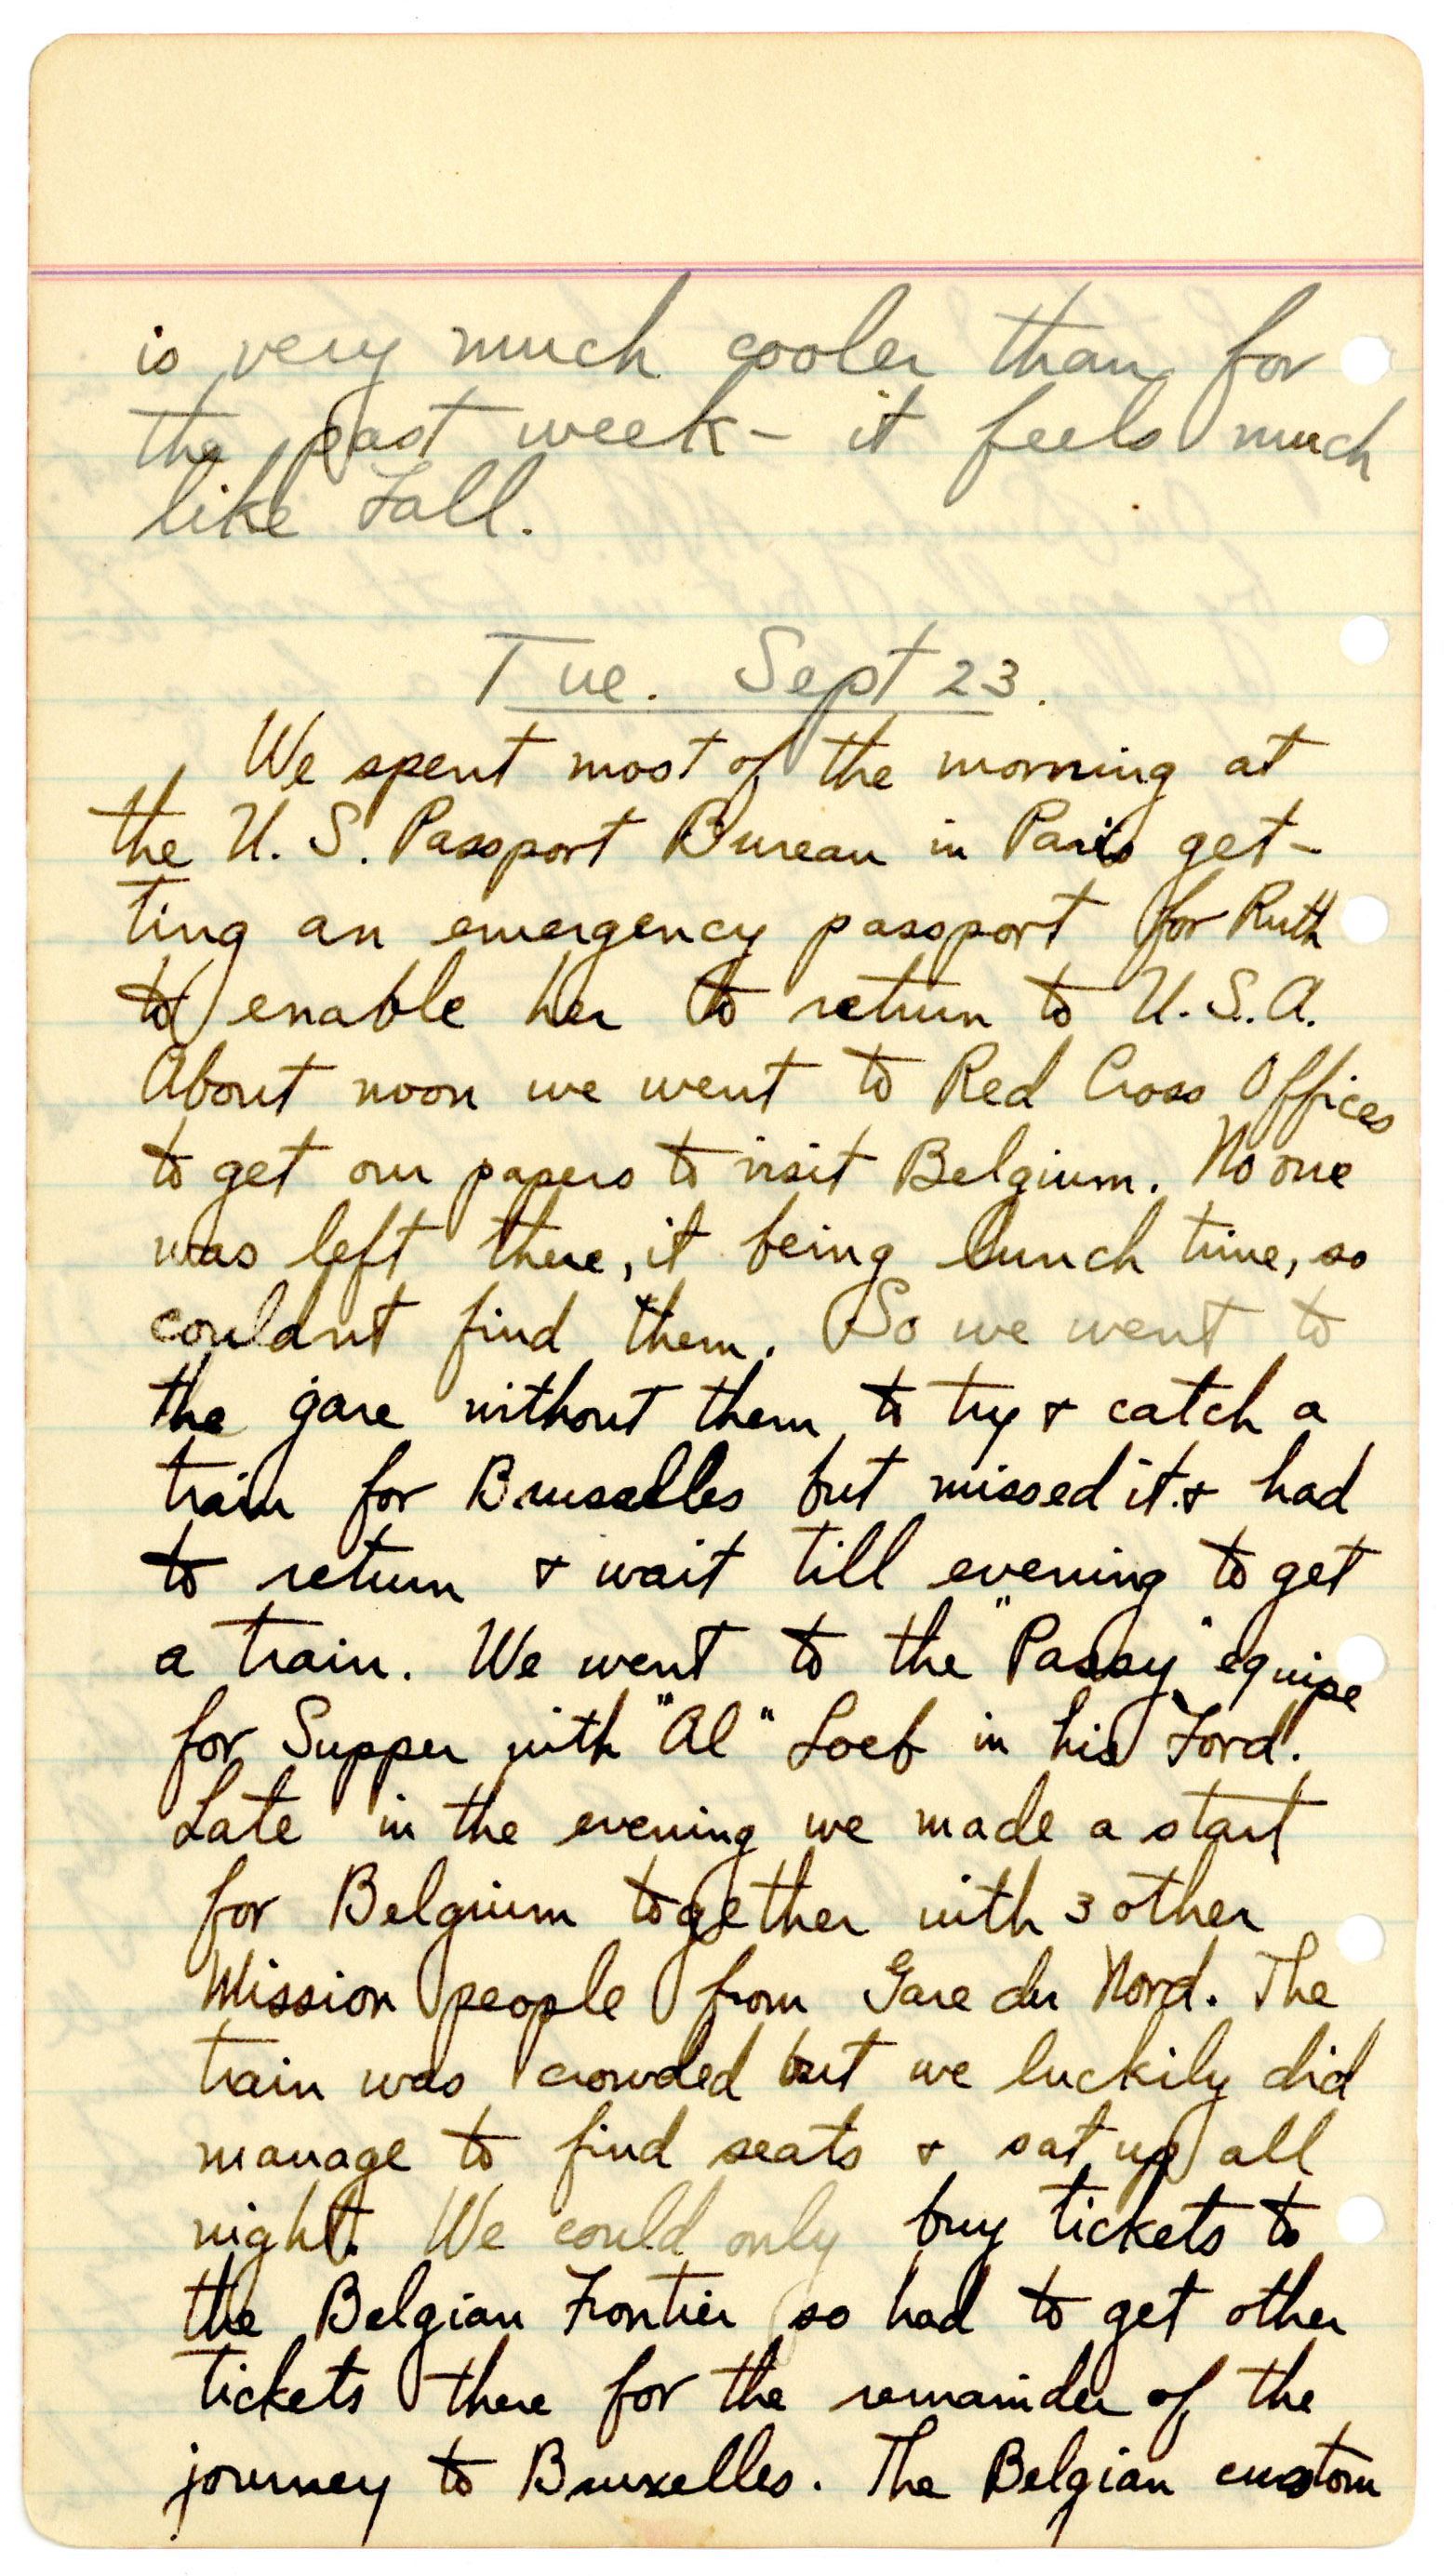 is very much cooler than for
the past week – it feels much
like Fall.
Tue. Sept 23.
We spent most of the morning at
the U. S. Passport Bureau in Paris get-
ting an emergency passport for Ruth
to enable her to return to U.S.A.
About noon we went to Red Cross Offices
to get our papers to visit Belgium. No one
was left there, it being lunch time, so
couldnt find them. So we went to
the gare without them to try & catch a
train for Brusselles but missed it & had
to return & wait till evening to get
a train. We went to the "Passy" equipe
for Supper with "Al" Loeb in his Ford.
Late in the evening we made a start
for Belgium together with 3 other
Mission people from Gare du Nord. The
train was crowded but we luckily did
manage to find seats & sat up all
night. We could only buy tickets to
the Belgian Frontier so had to get other
tickets there for the remainder of the
journey to Bruxelles. The Belgian custom